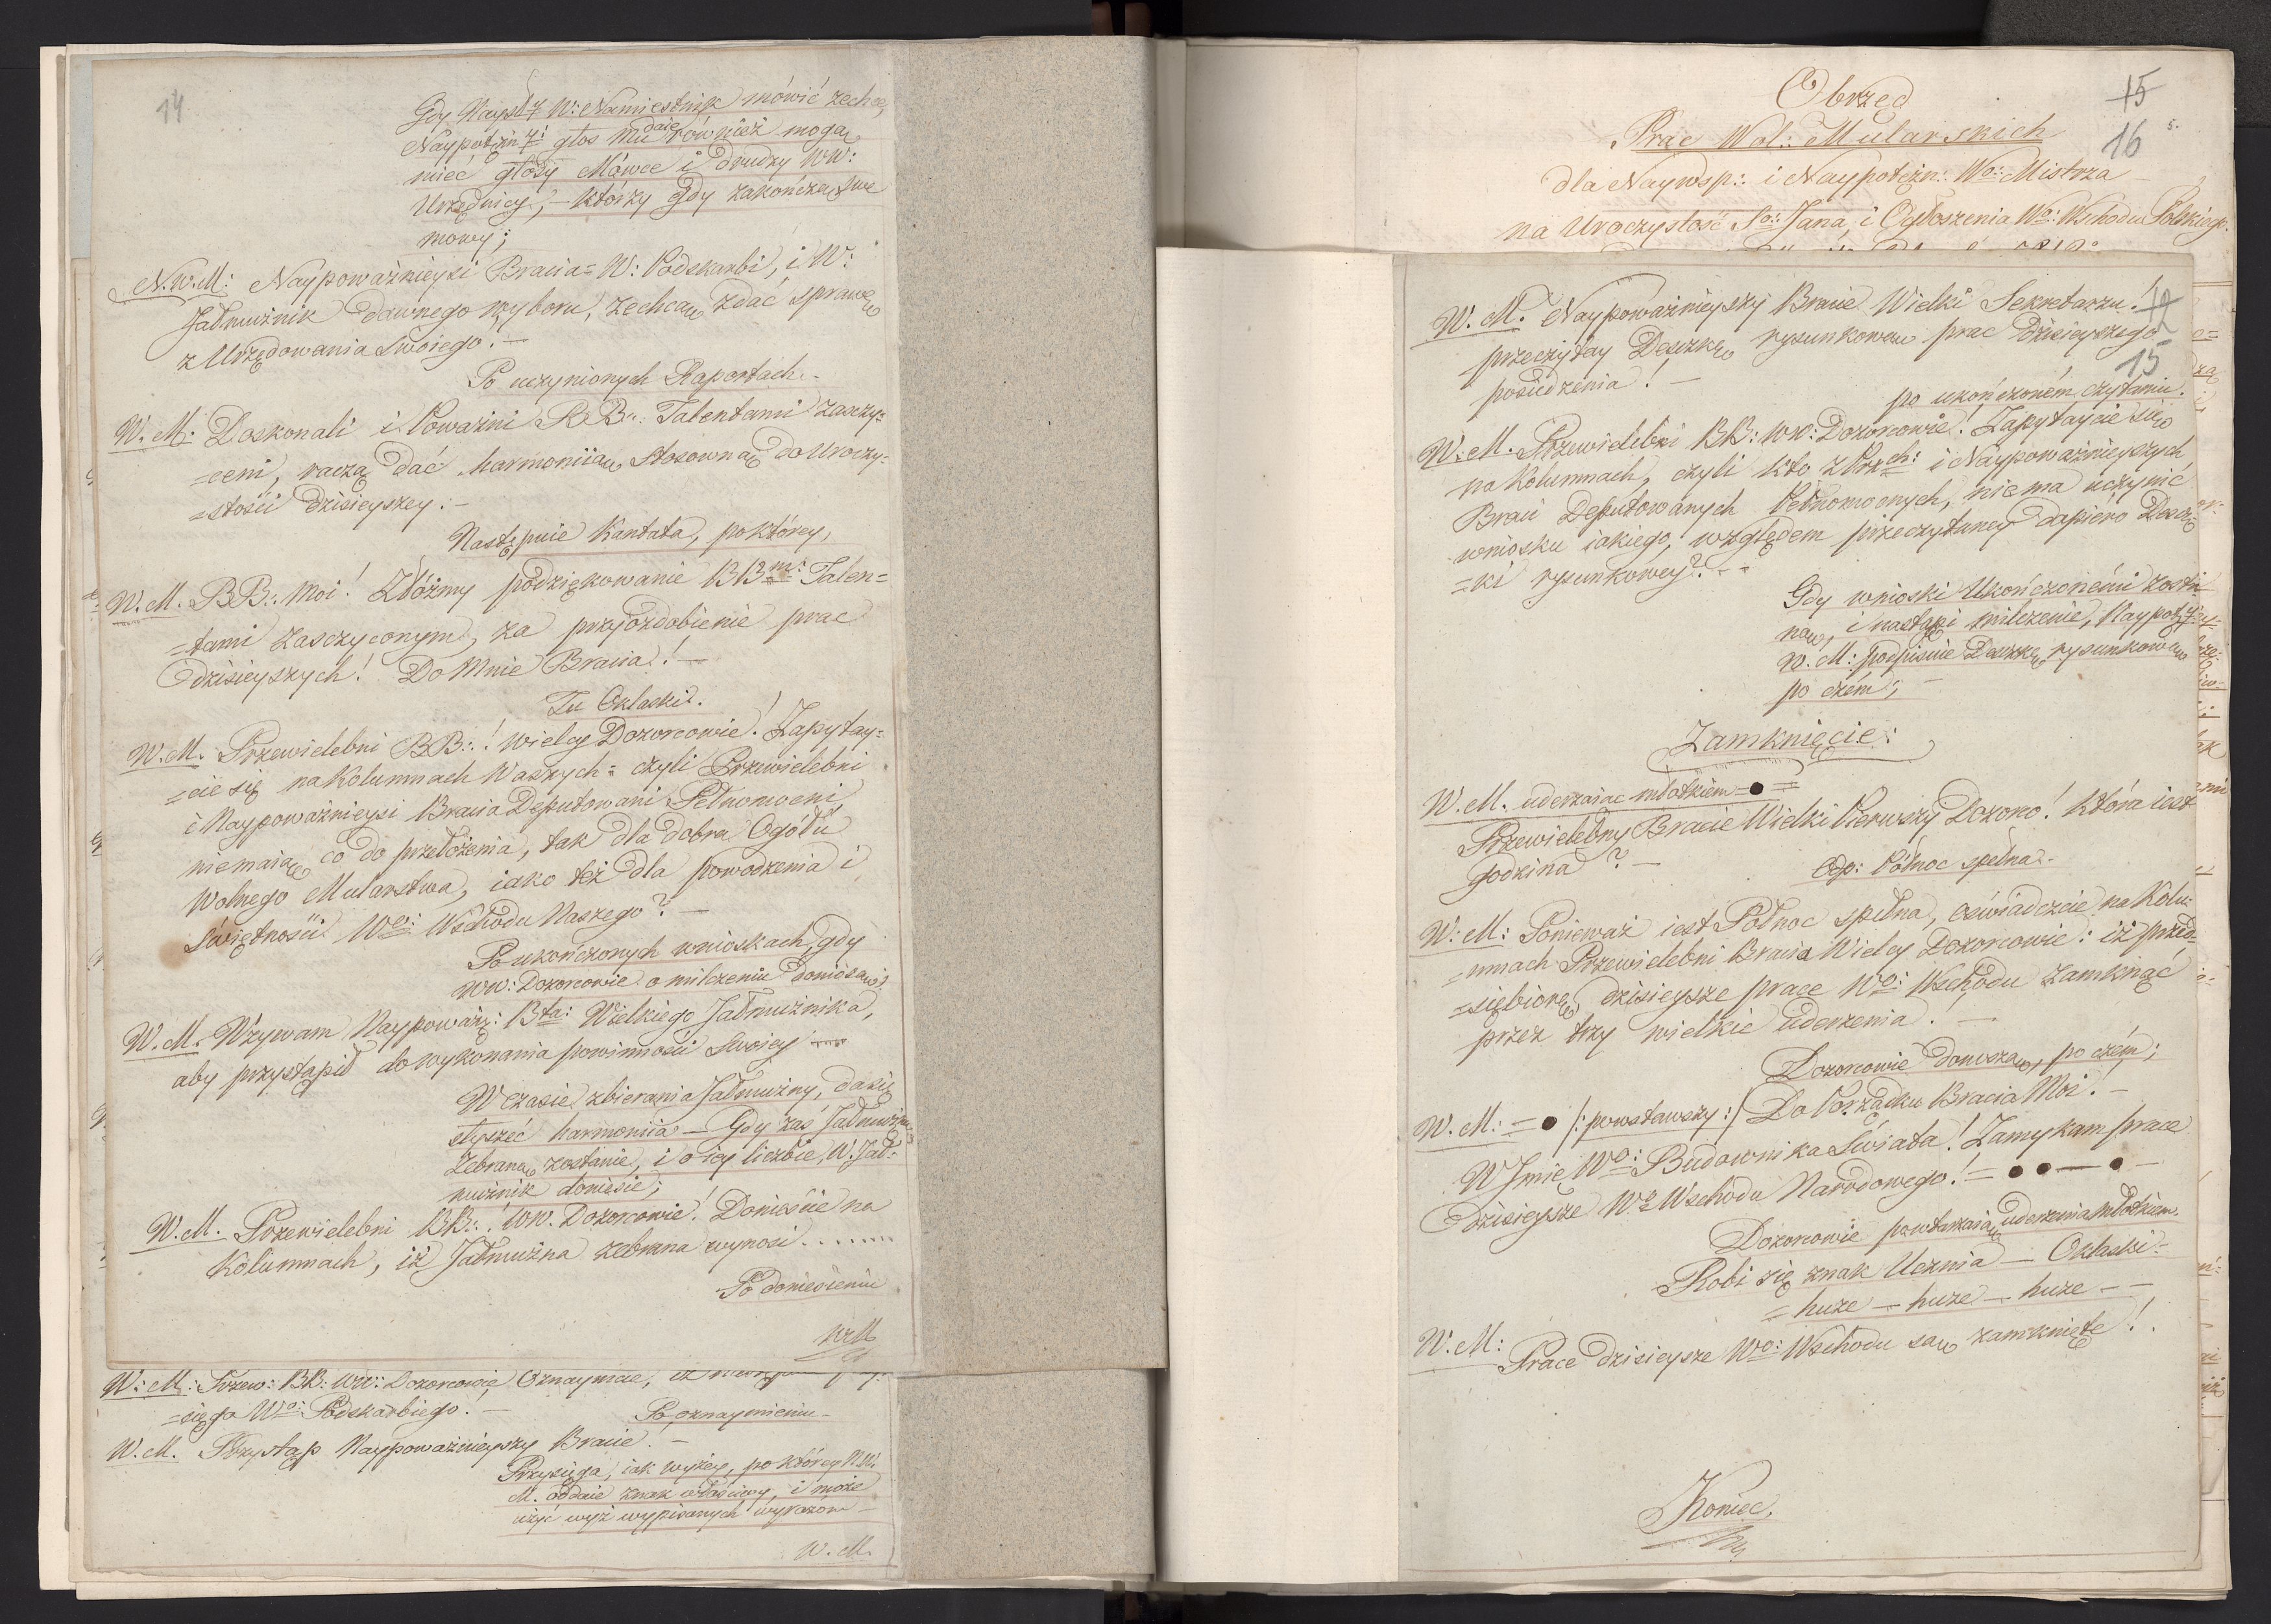 14
Gdy Nayp W: Namiestnik mówić zechce,
Naypotężn głos mu daie, również mogą
mieć głosy Mówce i drudzy WW:
Urzędnicy, – którzy gdy zakończą swe
mowy;
N.W.M: Naypoważnieysi Bracia = W: Podskarbi, i W:
Jałmużnik dawnego wyboru, zechcą zdać sprawę
z Urzędowania Swoiego. –
Po uczynionych Raportach. –
W. M: Doskonali i Poważni BB∴ Talentami zaszczy=
=ceni, raczą dać harmoniią stosowną do Uroczy=
=stości dzisieyszey: –
Następnie Kantata, po którey,
W. M. BB∴ Moi! Złóżmy podziękowanie BBm: Talen=
=tami zaszczyconym, za przyozdobienie prac
dzisieyszych! Do Mnie Bracia! –
Tu Oklaski.
W. M. Przewielebni BB∴! Wielcy Dozorcowie! Zapytay=
=cie się na Kolumnach Waszych = czyli Przewielebni
i Naypoważnieysi Bracia Deputowani Pełnomocni,
niemaią co do przełożenia, tak dla dobra Ogółu
Wolnego Mularstwa, iako też dla powodzenia i
świętności Wgo: Wschodu Naszego? –
Po ukończonych wnioskach, gdy
WW: Dozorcowie o milczeniu doniosą;
W. M. Wzywam Naypoważ: Bta: Wielkiego Jałmużnika,
aby przystąpił do wykonania powinności Swoiey
W czasie zbierania Jałmużny, da się
słyszeć harmoniia – Gdy zaś Jałmużna
zebraną zostanie, i o iey liczbie, W. Jał=
mużnik doniesie;
W. M. Przewielebni BB∴ WW. Dozorcowie! Donieście na
Kolumnach, iż Jałmużna zebrana wynosi ........
Po doniesieniu
W. M.
W: M: Przew: BB: WW: Dozorcowie Oznaymcie, iż
=cięgo Wo: Podskarbiego! –
Po oznaymieniu –
W. M. Przystąp Naypoważnieyszy Bracie! –
Przysięga, iak wyżey, po którey N.W.
M. oddaie znak właściwy, i może
użyć wyż wypisanych wyrazów –
W. M.
Obrzęd
15
16
5.
Prac Wol: Mularskich
dla Naywsp: i Naypotężn: Wo: Mistrza
na Uroczystość So: Jana, i Ogłoszenia Wo: Wschodu Polskiego.
W. M. Naypoważnieyszy Bracie Wielki Sekretarzu!
przeczytay Deszkę rysunkową prac dzisieyszego
15
posiedzenia! –
po ukończoném czytaniu.
W. M. Przewielebni BB: WW: Dozorcowie! Zapytaycie się
na Kolumnach, czyli kto z Prch: i Naypoważnieyszych
Braci Deputowanych Pełnomocnych, nie ma uczynić
wniosku iakiego, względem przeczytaney dopiero Desz=
=ki rysunkowey? –
Gdy wnioski Ukończonemi zosta=
ną, i nastąpi milczenie, Naypot
W. M: podpisuie Deszkę rysunkową
po czém; –
Zamknięcie:
W. M. uderzaiąc młotkiem = ● =
Przewielebny Bracie Wielki Pierwszy Dozorco! Która iest
godzina? –
Odp: Północ spełna –
W. M: Ponieważ iest Północ spełna, oświadczcie na Kolu=
=mnach Przewielebni Bracia Wielcy Dozorcowie: iż przed=
=siębiorę dzisieysze prace Wo: Wschodu zamknąć
przez trzy wielkie uderzenia! –
Dozorcowie donoszą, po czém;
W. M: = ● /: powstawszy :/ Do Porządku Bracia Moi! –
W Imię Wo: Budownika Świata! Zamykam prace
dzisieysze Wo Wschodu Narodowego! = ● ● — ● –
Dozorcowie powtarzaią uderzenia młotkiem.
Robi się znak Ucznia – Oklaski =
= huze – huze – huze – –
W. M:
Prace dzisieysze Wo: Wschodu są zamknięte!
Koniec.